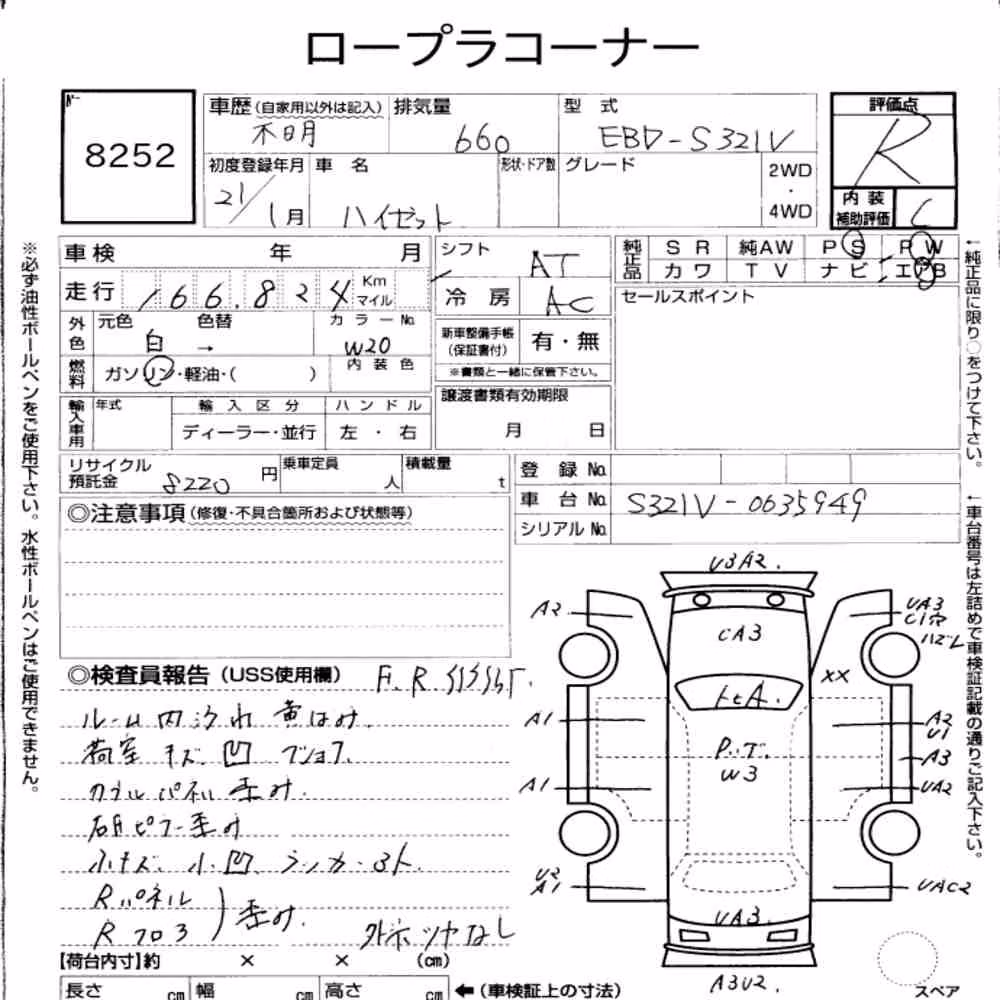 ロープラコーナー
8252
車歴 (自家用以外は記入) 不明
排気量 660
型 式 EBD-S321V
評価点 R
初度登録年月 21/1月
車 名 ハイゼット
形状・ドア数
グレード
2WD
・
4WD
内 装
補助評価 C
車 検 年 月
シフト AT
純正品
S R 純AW P S P W
カ ワ T V ナ ビ エアB
走 行 166,824 Km
マイル
冷 房 AC
セールスポイント
外色
元色 白 色替 → カ ラ ー No. W20
新車整備手帳
(保証書付)
有・無
※書類と一緒に保管下さい。
燃料
ガソリン・軽油・( )
内 装 色
譲渡書類有効期限
月 日
輸入車用
年式
輸 入 区 分
ハ ン ド ル
ディーラー・並行
左 ・ 右
リサイクル
預託金 8220 円
乗車定員 人
積載量 t
登 録 No.
車 台 No. S321V-0635949
シリアル No.
◎注意事項 (修復・不具合箇所および状態等)
◎検査員報告 (USS使用欄)
ルーム内汚れ
荷室 キズ 凹
歪み
小キズ 小凹
Rパネル
Rフロア 歪み
外ホッツナなし
【荷台内寸】約 × × (cm)
長さ cm 幅 cm 高さ cm
←(車検証上の寸法)
※必ず油性ボールペンをご使用下さい。水性ボールペンはご使用できません。
←純正品に限り○をつけて下さい。
←車台番号は左詰めで車検証記載の通りご記入下さい。
U3A2.
A2
UA3
C1穴
ハズレ
CA3
XX
A1
P.T.
W3
A2
U1
A3
A1
UA2
U2
A1
UAC2
UA3.
A3U2.
スペア